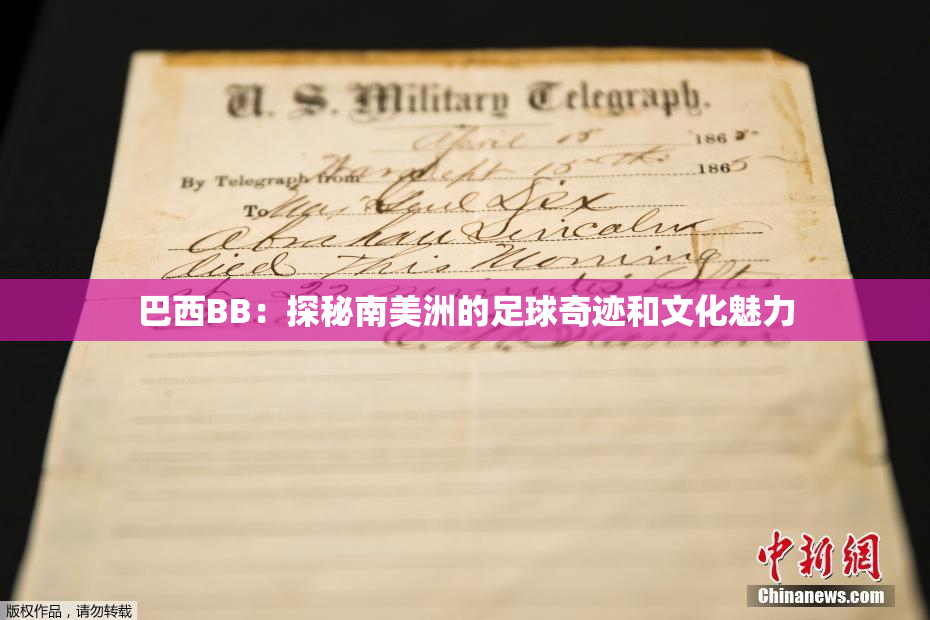 U. S. Military Telegraph.
April 15 1865
By Telegraph from War Dept 15th 1865
To Maj Genl Dix
Abraham Lincoln
died This Morning
22 minutes after
巴西BB：探秘南美洲的足球奇迹和文化魅力
E. M. Stanton
中新网
Chinanews.com
版权作品，请勿转载